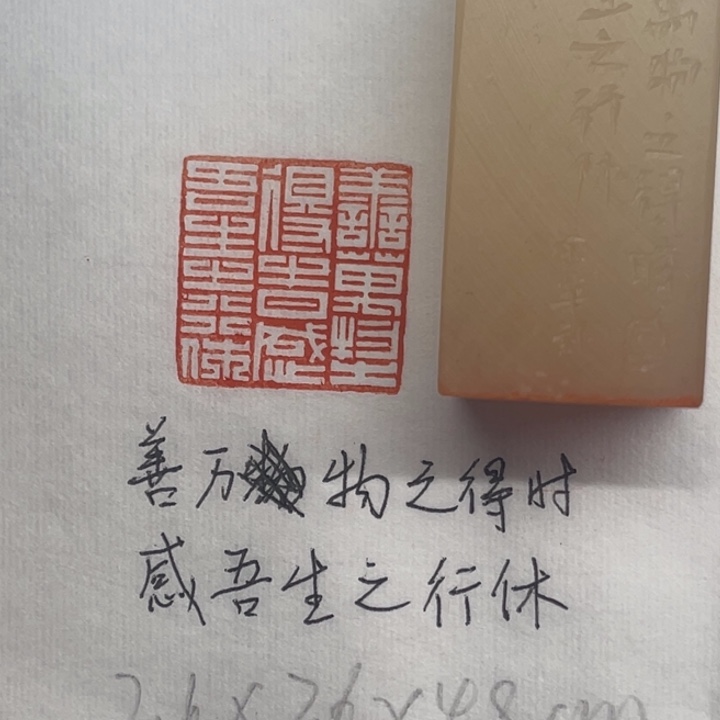 善萬物之得時感吾生之行休
善万物之得时
感吾生之行休
2.6×2.6×4.8cm